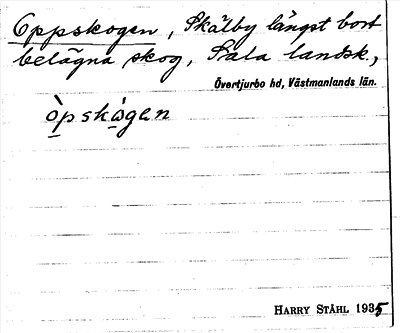 Oppskogen, Skälby längst bort
belägna skog, Sala landsk.,
Övertjurbo hd, Västmanlands län.
òpskògen
HARRY STÅHL 1935